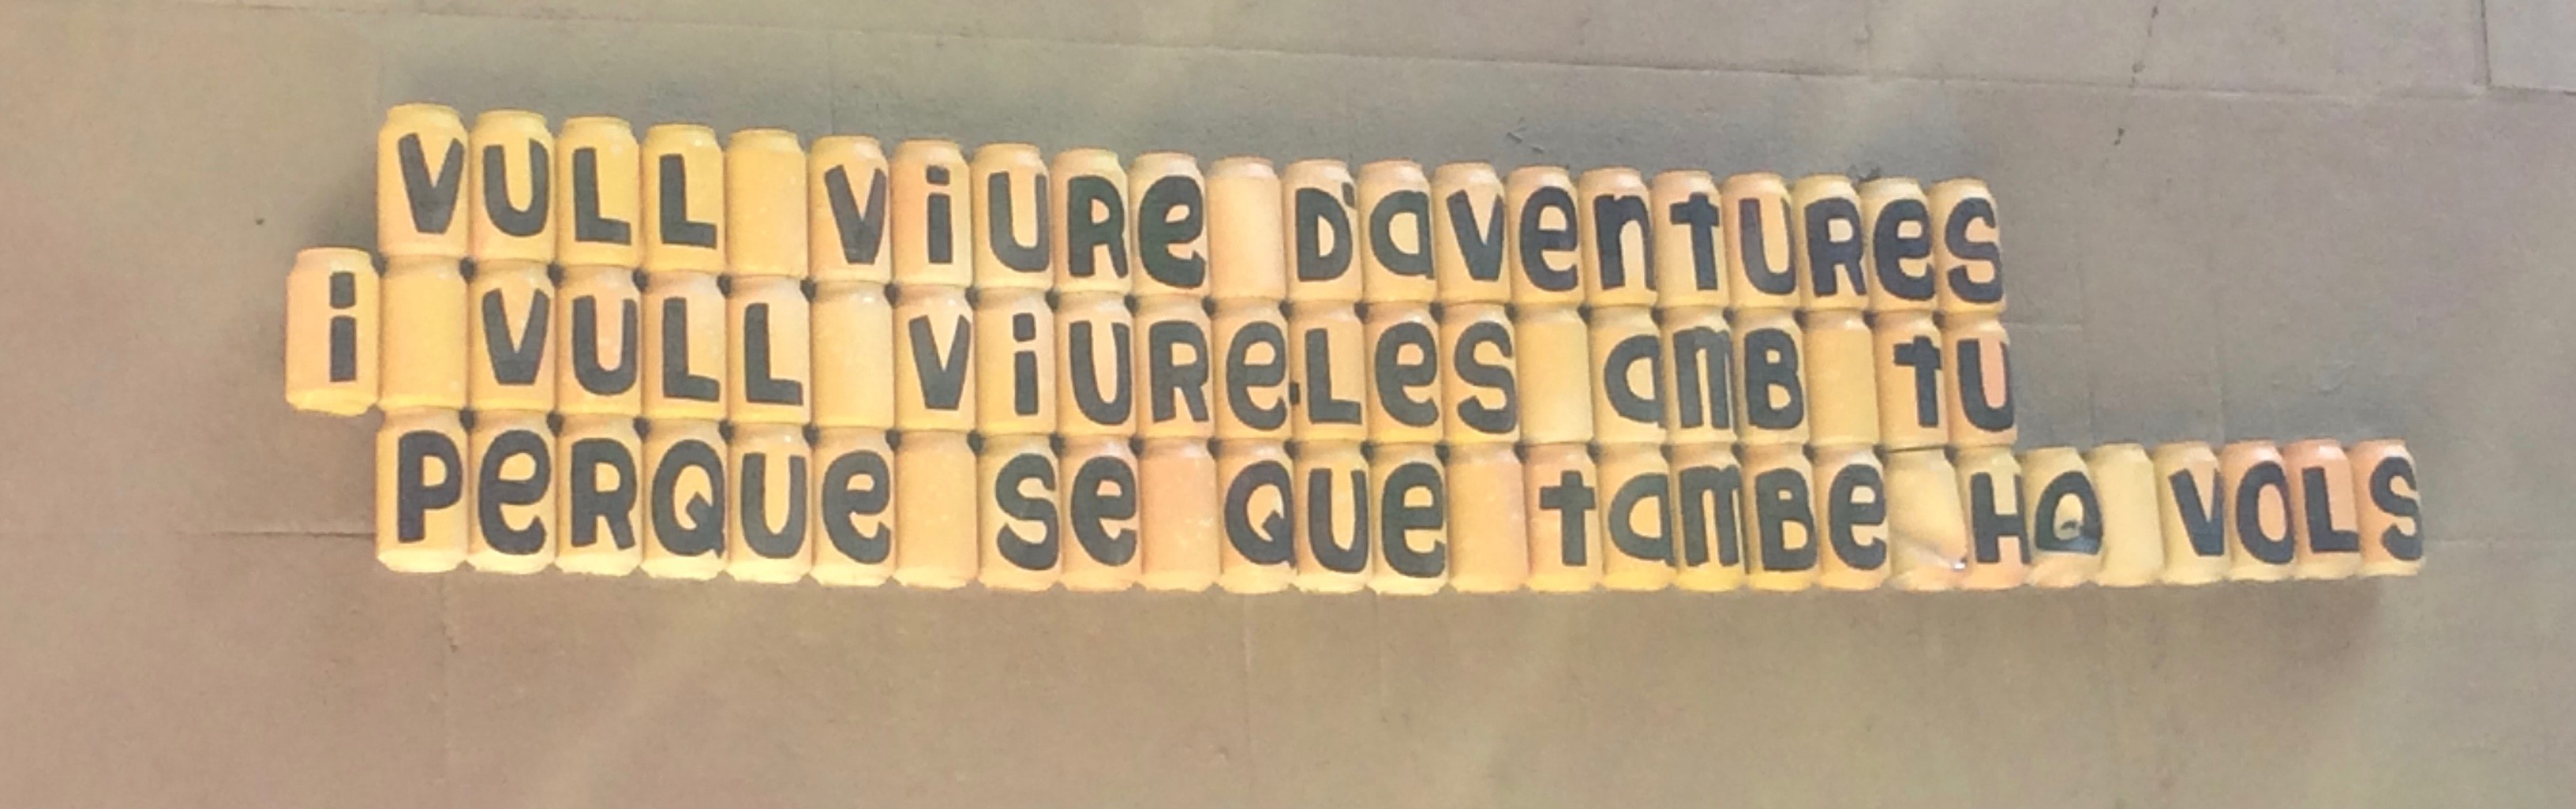 VULL VIURE D'AVENTURES
I VULL VIURE-LES AMB TU
PERQUE SE QUE TAMBE HO VOLS